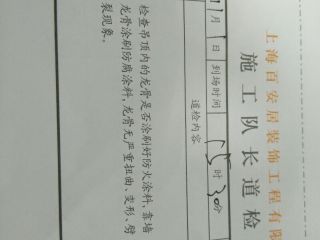 上海百安居装饰工程有限
施工队长道检
1月1日到场时间15时30分
道检内容
检查吊顶内的龙骨是否涂刷好防火涂料，靠墙
龙骨涂刷防腐涂料，龙骨无严重扭曲、变形、劈
裂现象。